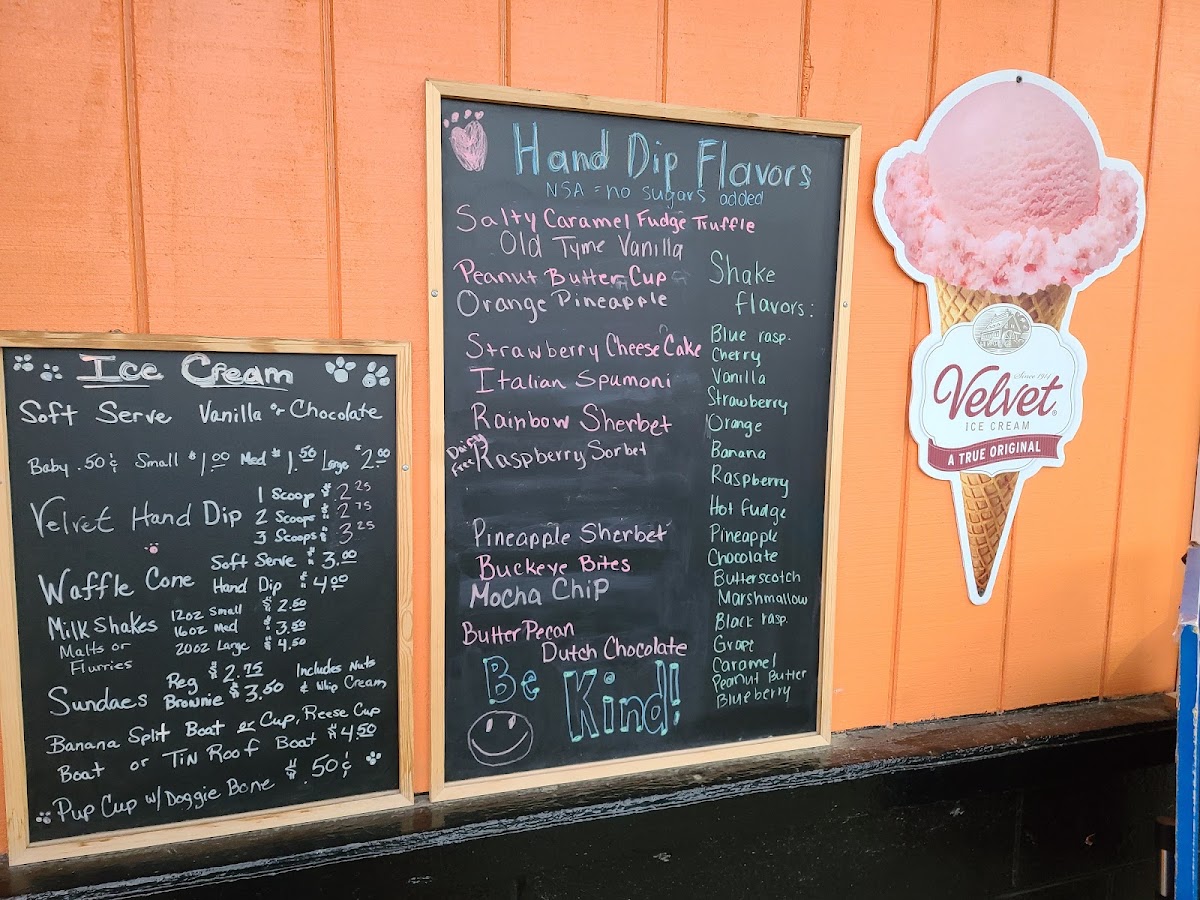 Ice Cream
Soft Serve Vanilla or Chocolate
Baby .50¢ Small $1.00 Med $1.50 Large $2.00
Velvet Hand Dip
1 Scoop $2.25
2 Scoops $2.75
3 Scoops $3.25
Waffle Cone
Soft Serve $3.00
Hand Dip $4.00
Milkshakes
Malts or
Flurries
12oz Small $2.50
16oz Med $3.50
20oz Large $4.50
Sundaes
Reg $2.75
Brownie $3.50
Includes Nuts
& Whip Cream
Banana Split Boat or Cup, Reese Cup
Boat or Tin Roof Boat $4.50
Pup Cup w/Doggie Bone $.50¢
Hand Dip Flavors
NSA = no sugars added
Salty Caramel Fudge Truffle
Old Tyme Vanilla
Peanut Butter Cup
Orange Pineapple
Strawberry Cheese Cake
Italian Spumoni
Rainbow Sherbet
Dairy
Free
Raspberry Sorbet
Pineapple Sherbet
Buckeye Bites
Mocha Chip
Butter Pecan
Dutch Chocolate
Be Kind!
Shake
flavors:
Blue rasp.
Cherry
Vanilla
Strawberry
Orange
Banana
Raspberry
Hot fudge
Pineapple
Chocolate
Butterscotch
Marshmallow
Black rasp.
Grape
Caramel
Peanut Butter
Blueberry
Since 1914
Velvet®
ICE CREAM
A TRUE ORIGINAL